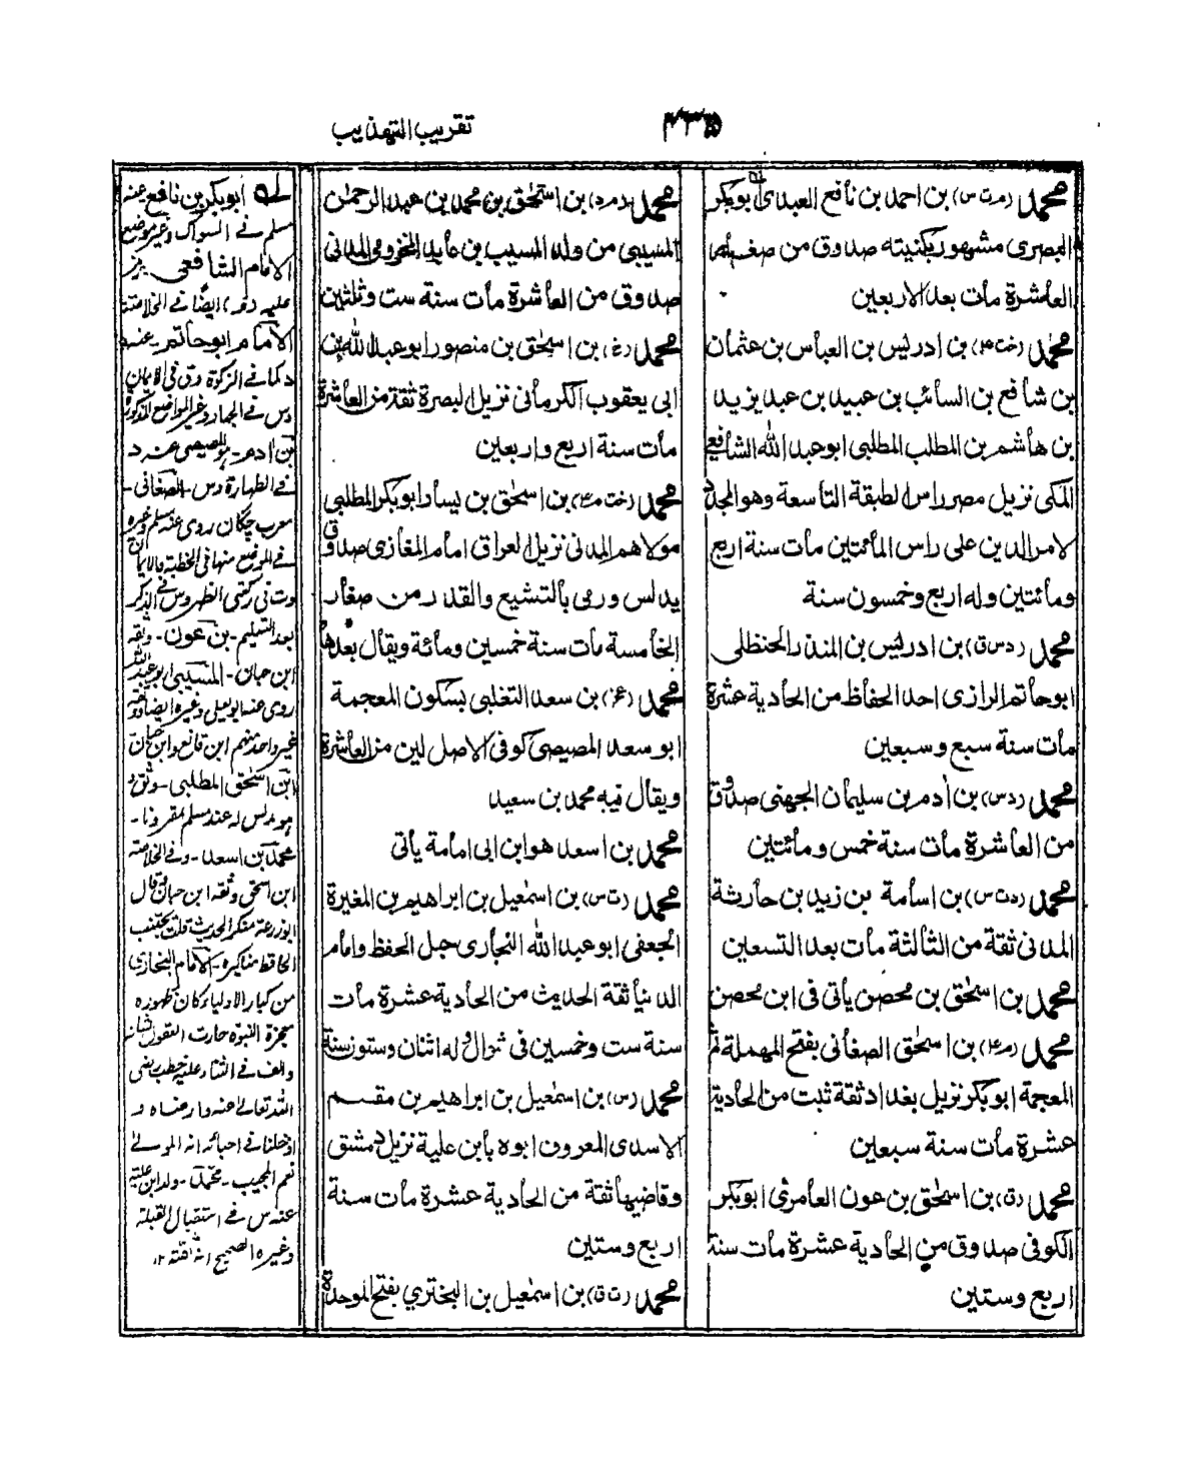 ٤٣٥
تقريب التهذيب
محمد (م ت س) بن احمد بن نافع العبدى ابوبكر
البصرى مشهور بكنيته صدوق من صغار
العاشرة مات بعد الاربعين
محمد (خت ٤) بن ادريس بن العباس بن عثمان
بن شافع بن السائب بن عبيد بن عبد يزيد
بن هاشم بن المطلب المطلبى ابو عبد الله الشافعي
المكى نزيل مصر راس الطبقة التاسعة وهو المجدد
لامر الدين على راس المائتين مات سنة اربع
ومائتين وله اربع وخمسون سنة
محمد (د س ق) بن ادريس بن المنذر الحنظلى
ابو حاتم الرازى احد الحفاظ من الحادية عشرة
مات سنة سبع وسبعين
محمد (د س) بن آدم بن سليمان الجهنى صدوق
من العاشرة مات سنة خمس ومائتين
محمد (د ت س) بن اسامة بن زيد بن حارثة
المدنى ثقة من الثالثة مات بعد التسعين
محمد بن اسحٰق بن محصن ياتى فى ابن محصن
محمد (م ٤) بن اسحٰق الصغانى بفتح المهملة ثم
المعجمة ابوبكر نزيل بغداد ثقة ثبت من الحادية
عشرة مات سنة سبعين
محمد (ق) بن اسحٰق بن عون العامرى ابوبكر
الكوفى صدوق من الحادية عشرة مات سنة
اربع وستين
محمد (م د) بن اسحٰق بن محمد بن عبد الرحمٰن
المسيبى من ولد المسيب بن عابد المخزومى المدنى
صدوق من العاشرة مات سنة ست وثلثين
محمد (خ) بن اسحٰق بن منصور ابو عبد الله بن
ابى يعقوب الكرمانى نزيل البصرة ثقة من العاشرة
مات سنة اربع واربعين
محمد (خت م ٤) بن اسحٰق بن يسار ابوبكر المطلبى
مولاهم المدنى نزيل العراق امام المغازى صدوق
يدلس ورمى بالتشيع والقدر من صغار
الخامسة مات سنة خمسين ومائة ويقال بعدها
محمد (د) بن سعد التغلبى بسكون المعجمة
ابو سعد المصيصى كوفى الاصل لين من العاشرة
ويقال فيه محمد بن سعيد
محمد بن اسعد هو ابن ابى امامة ياتى
محمد (ت س) بن اسمٰعيل بن ابراهيم بن المغيرة
الجعفى ابو عبد الله البخارى جبل الحفظ وامام
الدنيا ثقة الحديث من الحادية عشرة مات
سنة ست وخمسين فى شوال وله اثنان وستون سنة
محمد (س) بن اسمٰعيل بن ابراهيم بن مقسم
الاسدى المعروف ابوه بابن علية نزيل دمشق
وقاضيها ثقة من الحادية عشرة مات سنة
اربع وستين
محمد (ت ق) بن اسمٰعيل بن البخترى بفتح الموحدة
له ابوبكر بن نافع عنه
مسلم فى السواك وغير موضع
الامام الشافعى
عليه ايضا فى الخلاصة
الامام ابو حاتم عنه
د كما فى الزكوة وق فى الايمان
وس فى الجهاد وغير المواضع المذكورة
بن آدم المصيصى عنه د
فى الطهارة وس الصغانى
معرب چگان روى عنه مسلم وغيره
فى المواضع منها فى الخطبة والايمان
وت فى ركعتى الظهر وس فى الذكر
بعد التسليم بن عون وثقه
ابن حبان المسيبى ابو عبد الله
روى عنه ابو يعلى وغيره ايضا وثقه
غير واحد منهم ابن قانع وابن حبان
ابن اسحٰق المطلبى وثق و
هو مدلس له عند مسلم مقرونا
محمد بن اسعد وفى الخلاصة
ابن اسحٰق وثقه ابن حبان قال
ابو زرعة منكر الحديث قلت يجتنب
الحافظ مناكيره الامام البخارى
من كبار الاولياء كان ظهوره
معجزة النبوة حارت العقول
والف فى الثناء عليه خطب رضى
الله تعالى عنه وارضاه و
ادخلنا فى احبائه انه المولى
نعم المجيب محمد ولد ابن علية
عنه س فى استقبال القبلة
وغيره الصحيح انه ثقة ١٢